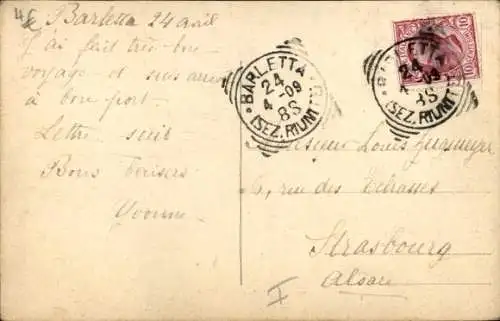 Barletta 24 avril
J'ai fait très bon
voyage et suis arrivée
à bon port.
Lettre suit
Bons baisers
Yvonne
BARLETTA
24
4 -09
8S
(SEZ. RIUNITE)
BARLETTA
24
4 -09
8S
(SEZ. RIUNITE)
10
10
Monsieur Louis
6, rue des Echasses
Strasbourg
Alsace